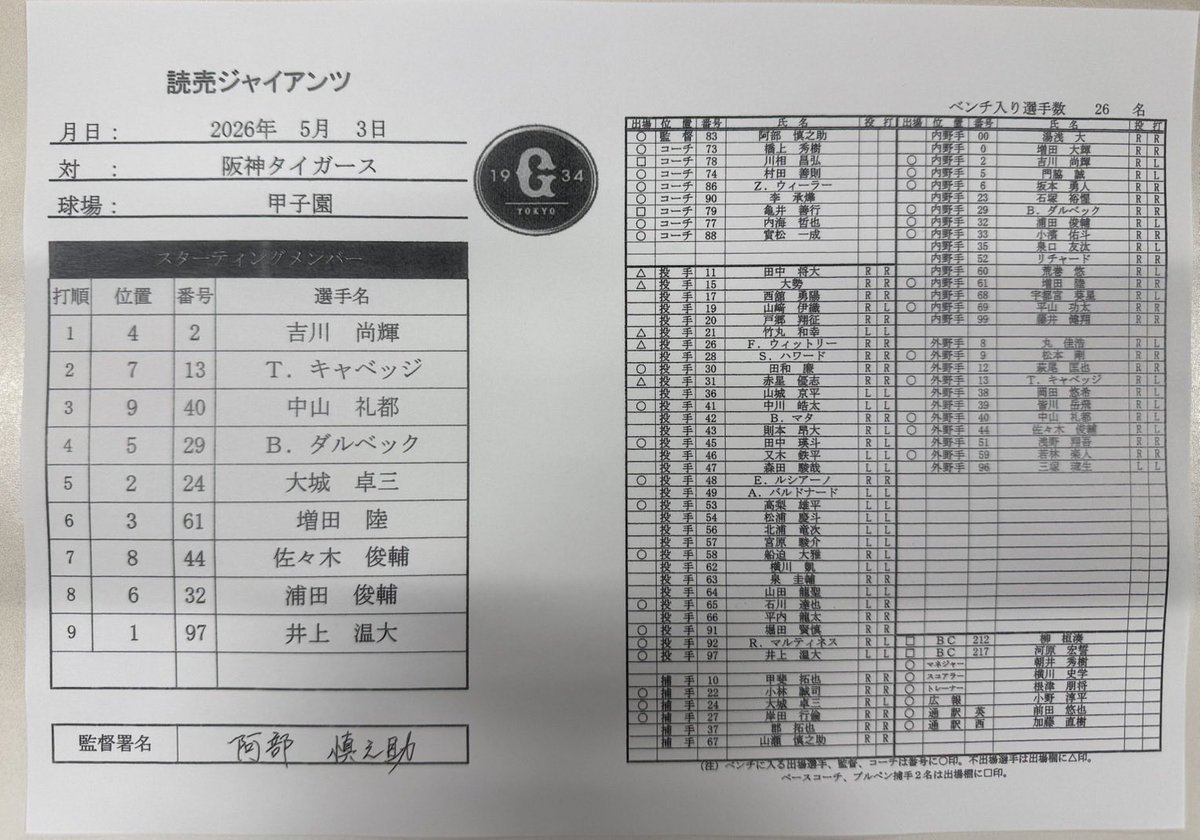 読売ジャイアンツ
月日： 2026年 5月 3日
対 ： 阪神タイガース
球場： 甲子園
19 G 34
TOKYO
スターティングメンバー
打順 位置 番号 選手名
1 4 2 吉川 尚輝
2 7 13 T．キャベッジ
3 9 40 中山 礼都
4 5 29 B．ダルベック
5 2 24 大城 卓三
6 3 61 増田 陸
7 8 44 佐々木 俊輔
8 6 32 浦田 俊輔
9 1 97 井上 温大
監督署名 阿部 慎之助
ベンチ入り選手数 26 名
出場 位置 番号 氏名 投 打
○ 監督 83 阿部 慎之助
○ コーチ 73 橋上 秀樹
□ コーチ 78 川相 昌弘
○ コーチ 74 村田 善則
○ コーチ 86 Z．ウィーラー
○ コーチ 90 李 承燁
□ コーチ 79 亀井 善行
○ コーチ 77 内海 哲也
○ コーチ 88 實松 一成
△ 投手 11 田中 将大 R R
△ 投手 15 大勢 R R
投手 17 西舘 勇陽 R R
投手 19 山﨑 伊織 R
投手 20 戸郷 翔征 R
△ 投手 21 竹丸 和幸 L L
△ 投手 26 F．ウィットリー R R
投手 28 S．ハワード R R
○ 投手 30 田和 廉 R R
△ 投手 31 赤星 優志 R R
投手 36 山城 京平 L L
○ 投手 41 中川 皓太 L L
投手 42 B．マタ R R
投手 43 則本 昂大 R
○ 投手 45 田中 瑛斗 R
投手 46 又木 鉄平 L L
投手 47 森田 駿哉 L L
○ 投手 48 E．ルシアーノ R R
投手 49 A．バルドナード L L
○ 投手 53 高梨 雄平 L L
投手 54 松浦 慶斗 L L
投手 56 北浦 竜次 L L
投手 57 宮原 駿介 L L
○ 投手 58 船迫 大雅 R
投手 62 横川 凱 L L
投手 63 泉 圭輔 R R
投手 64 山田 龍聖 L L
○ 投手 65 石川 達也 L
投手 66 平内 龍太 R R
○ 投手 91 堀田 賢慎 R R
○ 投手 92 R．マルティネス R
○ 投手 97 井上 温大 L L
捕手 10 甲斐 拓也 R R
○ 捕手 22 小林 誠司 R R
○ 捕手 24 大城 卓三 R L
○ 捕手 27 岸田 行倫 R R
捕手 37 郡 拓也 R R
捕手 67 山瀬 慎之助 R R
出場 位置 番号 氏名 投 打
内野手 00 湯浅 大 R R
内野手 0 増田 大輝 R R
○ 内野手 2 吉川 尚輝 R L
○ 内野手 5 門脇 誠 R L
○ 内野手 6 坂本 勇人 R R
内野手 23 石塚 裕惺 R R
○ 内野手 29 B．ダルベック R R
○ 内野手 32 浦田 俊輔 R L
○ 内野手 33 小濱 佑斗 R R
内野手 35 泉口 友汰 R L
内野手 52 リチャード R R
内野手 60 荒巻 悠 R L
○ 内野手 61 増田 陸 R R
内野手 68 宇都宮 葵星 R L
○ 内野手 69 平山 功太 R R
内野手 99 藤井 健翔 R R
外野手 8 丸 佳浩 R L
○ 外野手 9 松本 剛 R R
外野手 12 萩尾 匡也 R R
○ 外野手 13 T．キャベッジ R L
外野手 38 岡田 悠希 R L
外野手 39 皆川 岳飛 R L
○ 外野手 40 中山 礼都 R L
○ 外野手 44 佐々木 俊輔 R L
外野手 51 浅野 翔吾 R R
○ 外野手 59 若林 楽人 R R
外野手 96 三塚 琉生 L L
□ BC 212 柳 楨湊
□ BC 217 河原 宏誓
○ マネジャー 朝井 秀樹
○ スコアラー 横川 史学
○ トレーナー 根津 朋将
○ 広報 小野 淳平
○ 通訳 英 前田 悠也
○ 通訳 西 加藤 直樹
（注）ベンチに入る出場選手、監督、コーチは番号に○印。不出場選手は出場欄に△印。
ベースコーチ、ブルペン捕手2名は出場欄に□印。